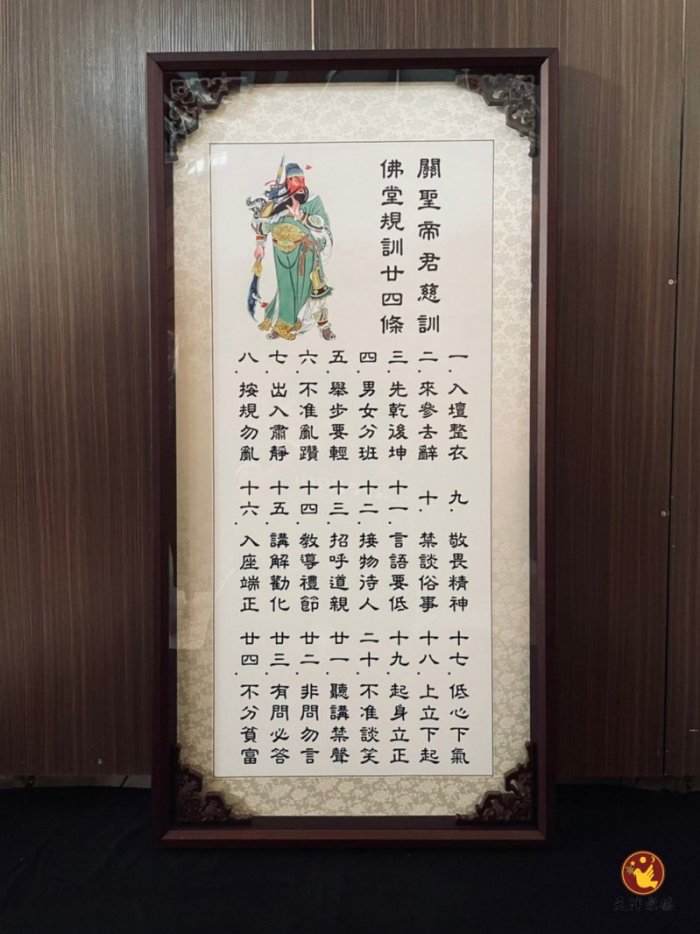 關聖帝君慈訓
佛堂規訓廿四條
一．入壇整衣
二．來參去辭
三．先乾後坤
四．男女分班
五．舉步要輕
六．不准亂鑽
七．出入肅靜
八．按規勿亂
九．敬畏精神
十．禁談俗事
十一．言語要低
十二．接物待人
十三．招呼道親
十四．教導禮節
十五．講解勸化
十六．入座端正
十七．低心下氣
十八．上立下起
十九．起身立正
二十．不准談笑
廿一．聽講禁聲
廿二．非問勿言
廿三．有問必答
廿四．不分貧富